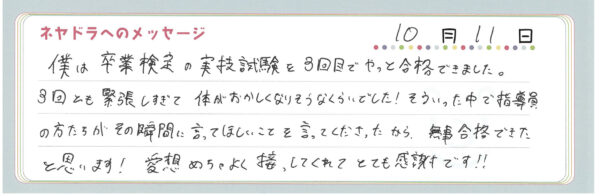 ネヤドラへのメッセージ
10月11日
僕は卒業検定の実技試験を3回目でやっと合格できました。
3回とも緊張しすぎて体がおかしくなりそうなくらいでした！そういった中で指導員
の方たちがその瞬間に言ってほしいことを言ってくださったから、無事合格できた
と思います！愛想めちゃよく接してくれてとても感謝です!!